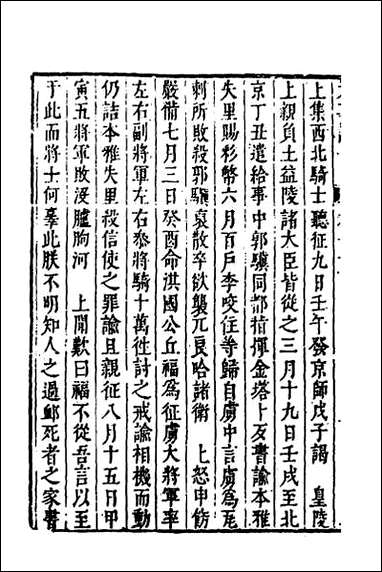 上集西北騎士聽征九日壬午發京師戊子謁　皇陵
上親負土益陵諸大臣皆從之三月十九日壬戌至北
京丁丑遣給事中郭驥同都指揮金塔卜歹書諭本雅
失里賜彩幣六月百戶李咬住等歸自虜中言虜爲瓦
剌所敗殺郭驥哀散卒欲襲兀良哈諸衛　上怒申飭
嚴備七月三日癸酉命淇國公丘福爲征虜大將軍率
左右副將軍左右叅將騎十萬徃討之戒諭相機而動
仍詰本雅失里殺信使之罪諭且親征八月十五日甲
寅五將軍敗没臚朐河　上聞歎曰福不從吾言以至
于此而將士何辜此朕不明知人之過䘏死者之家書